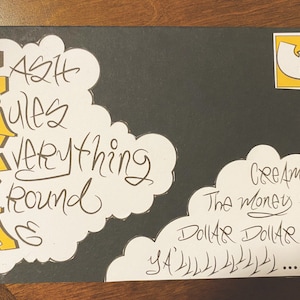 ASH
ules
verything
round
E
CREAM
The Money
Dollar Dollar
YA'LLLLLLLLL ....